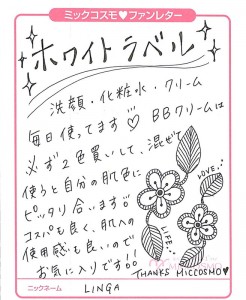 ミックコスモ♥ファンレター
ホワイトラベル
洗顔・化粧水・クリーム
毎日使ってます♡ BBクリームは
必ず2色買いして、混ぜて
使うと自分の肌色に
ピッタリ合います♡
コスパも良く、肌への
使用感も良いので
お気に入りです!!
LOVE
LIFE
THANKS MICCOSMO♥
ニックネーム LINGA